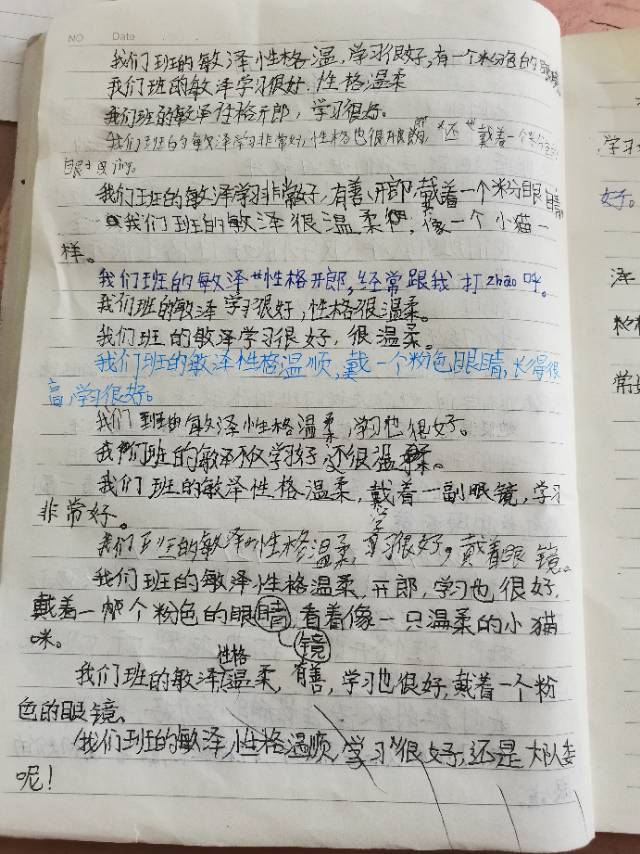 NO Date
我们班的敏泽性格温,学习很好,有一个粉色的眼
我们班的敏泽学习很好.性格温柔
我们班的敏泽性格开郎,学习很好。
我们班的敏泽学习非常好,性格也很 还 戴着一个粉
眼
我们班的敏泽学习非常好,有善,开郎,戴着一个粉眼睛
我们班的敏泽很温柔,像一个小猫一
样。
我们班的敏泽性格开郎,经常跟我打zhāo呼。
我们班的敏泽学习很好,性格很温柔。
我们班的敏泽学习很好,很温柔。
我们班的敏泽性格温顺,戴一个粉色眼睛,长得很
高,学习很好。
我们班的敏泽性格温柔,学习也很好。
我们班的敏泽不仅学习好还很温柔。
我们班的敏泽性格温柔,戴着一副眼镜,学习
非常好。
我们班的敏泽性格温柔,学习很好,戴着眼镜。
我们班的敏泽性格温柔,开郎,学习也很好,
戴着一个粉色的眼睛,看着像一只温柔的小猫
咪。
镜
性格
我们班的敏泽温柔,有善,学习也很好,戴着一个粉
色的眼镜、
我们班的敏泽,性格温顺,学习很好,还是大队委
呢!
学习
好。
泽
粉
常好